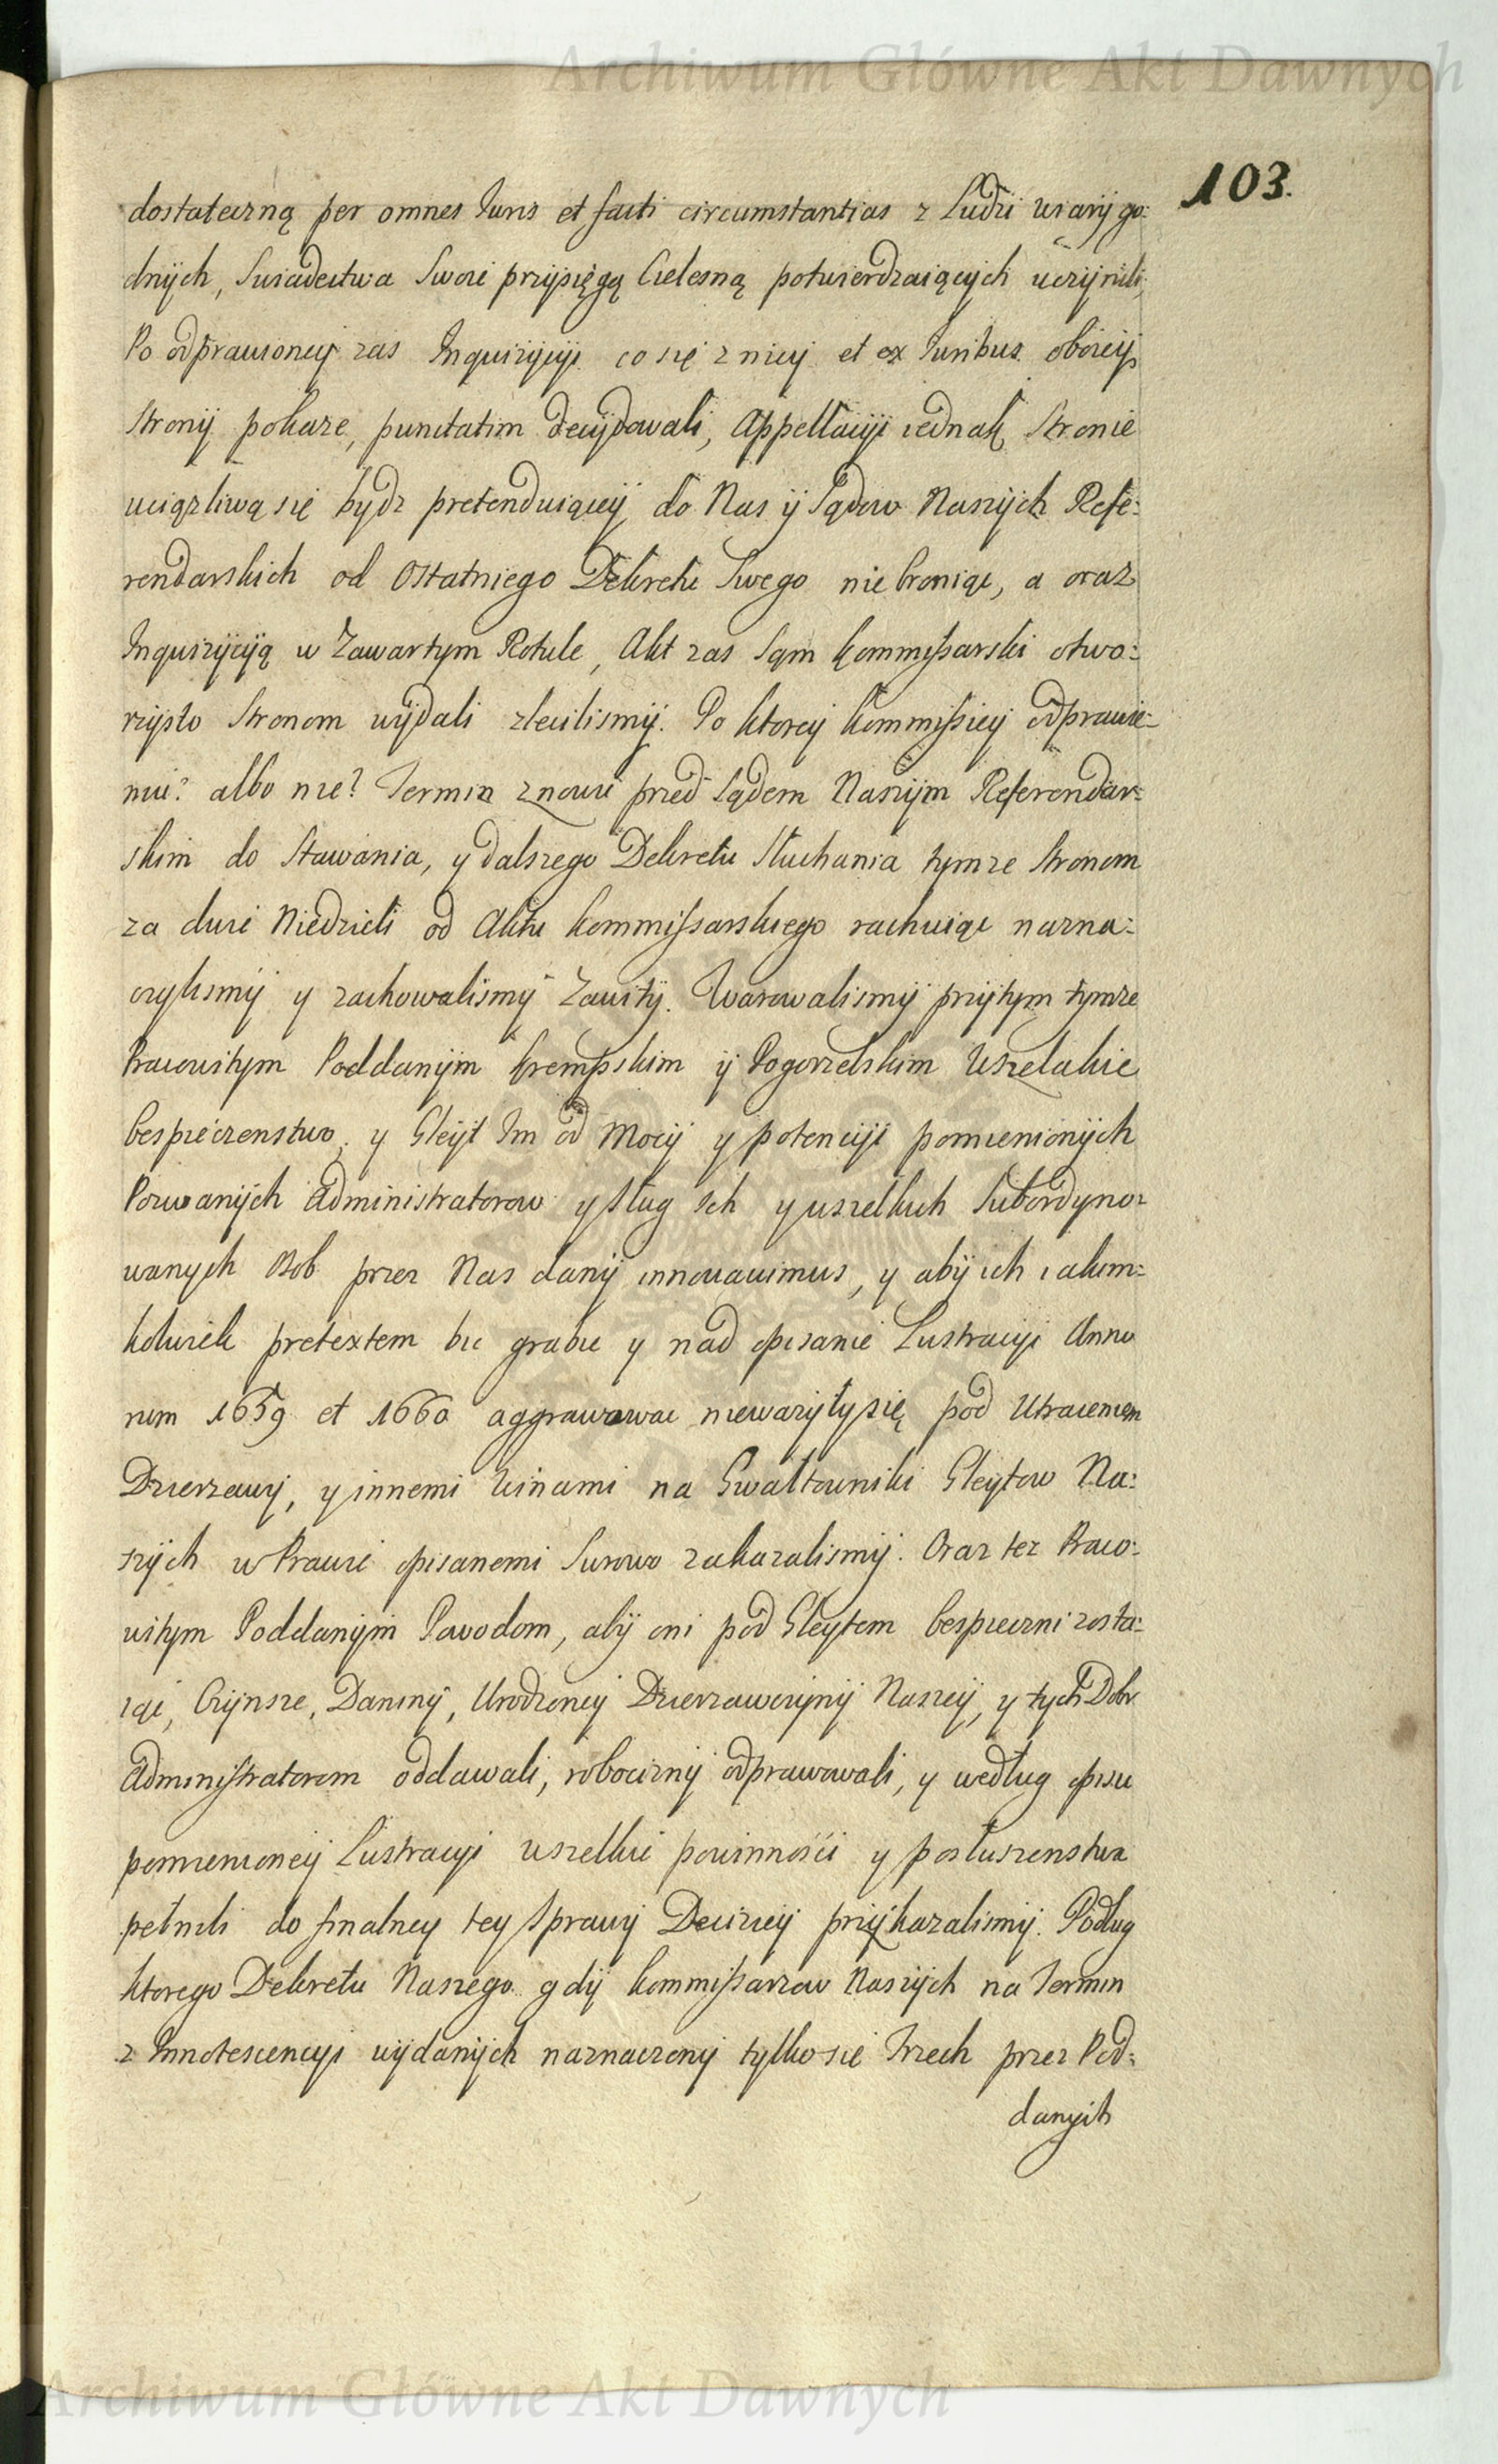 Archiwum Główne Akt Dawnych
103.
dostateczną per omnes Juris et facti circumstantias z Ludzi wiary go:
dnÿch, Swiadectwa Swoie przÿsięgą Cielesną potwierdzaiącÿch uczÿnili,
Po odprawioneÿ zas Inquizÿcÿi co się z nieÿ et ex Juribus oboieÿ
Stronÿ pokaze, punctatim decÿdowali, Appellacÿi iednak Stronie
uciązliwą się bydz pretenduiąceÿ do Nas ÿ Sądow Naszÿch Refe:
rendarskich od Ostatniego Dekretu Swego nie broniąc, a oraz
Inquizÿcÿą w Zawartym Rotule, Akt zas Sąm kommissarski otwo:
rzÿsto Stronom wÿdali zlecilismÿ. Po ktoreÿ kommissieÿ odprawie-
niu? albo nie? Termin znowu przed Sądem Naszÿm Referendar:
skim do Stawania, y dalszego Dekretu Słuchania tymze Stronom
za dwie Niedzieli od Aktu kommissarskiego rachuiąc nazna:
czylismÿ y zachowalismÿ Zawitÿ. Warowalismÿ przÿtym tymze
Pracowitym Poddanÿm krempskim ÿ Pogorzelskim Wszelakie
bespieczenstwo, y Gleÿt Im od Mocÿ y potencÿi pomienionÿch
Pozwanÿch Administratorow y Sług Ich y wszelkich Subordyno:
wanych Osob przez Nas danÿ innovavimus, y abÿ ich iakim:
kolwiek pretextem bic grabic y nad opisanie Lustracÿi Anno
rum 1659 et 1660 aggrawowac niewazÿłÿ się pod Utraceniem
Dzierzawÿ, y innemi Winami na Gwałtowniki Gleytow Na:
szÿch w Prawie opisanemi Surowo zakazalismÿ. Oraz tez Praco:
witym Poddanÿm Powodom, abÿ oni pod Gleytem bespieczni zosta:
iąc, Czÿnsze, Daninÿ, Urodzoneÿ Dzierzawczÿnÿ Naszeÿ, y tych Dobr
Administratorom oddawali, robociznÿ odprawowali, y według opisu
pomienioneÿ Lustracyi wszelkie powinności y posłuszenstwa
pełnili do finalney tey Sprawÿ Decizieÿ przÿkazalismÿ. Podług
ktorego Dekretu Naszego gdÿ kommissarzow Naszÿch na Termin
z Innotescencyi wÿdanÿch naznaczonÿ tylko się Trzech przez Pod:
danych
Archiwum Główne Akt Dawnych